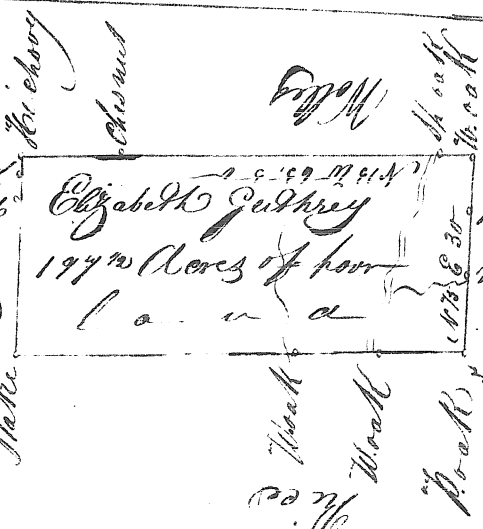 Hickory
Chesnut
Molley
Sp oak
W oak
N 15 W 63.5
Elizabeth Guthrey
197 1/2 Acres of poor
land
N 75 E 30
Stake
W oak
W oak
P oak